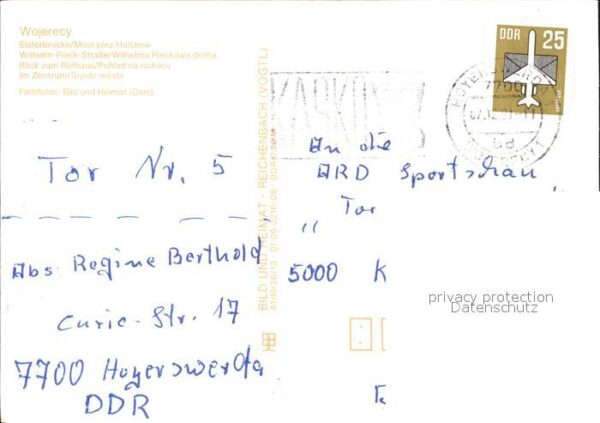 Wojerecy
Elsterbrücke/Móst přez Halštrow
Wilhelm-Pieck-Straße/Wilhelma Pieckowa dróha
Blick zum Rathaus/Pohlad na radnicu
Im Zentrum/Srjedź města
Farbfotos: Bild und Heimat
DDR 25
7700
Tor Nr. 5
Abs Regine Berthold
Curie-Str. 17
7700 Hoyerswerda
DDR
BILD UND HEIMAT · REICHENBACH (VOGTL)
An die
ARD Sportschau
„Tor
5000 K
privacy protection
Datenschutz